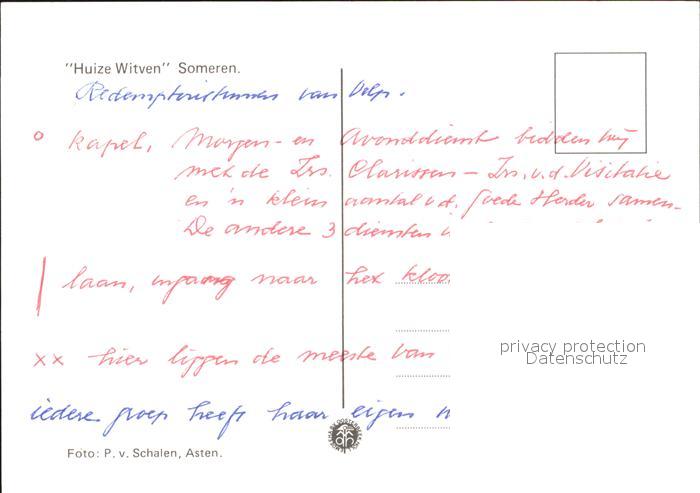 "Huize Witven" Someren.
Redemptoristinnen van Velp.
o kapel, Morgen- en Avonddienst bidden wij
met de Zrs. Clarissen - Zrs. v.d. Visitatie
en 'n klein aantal v.d. Goede Herder samen-
De andere 3 diensten
| laan, ingang naar het kloo
xx hier liggen de meeste van
privacy protection
Datenschutz
iedere groep heeft haar eigen
Foto: P. v. Schalen, Asten.